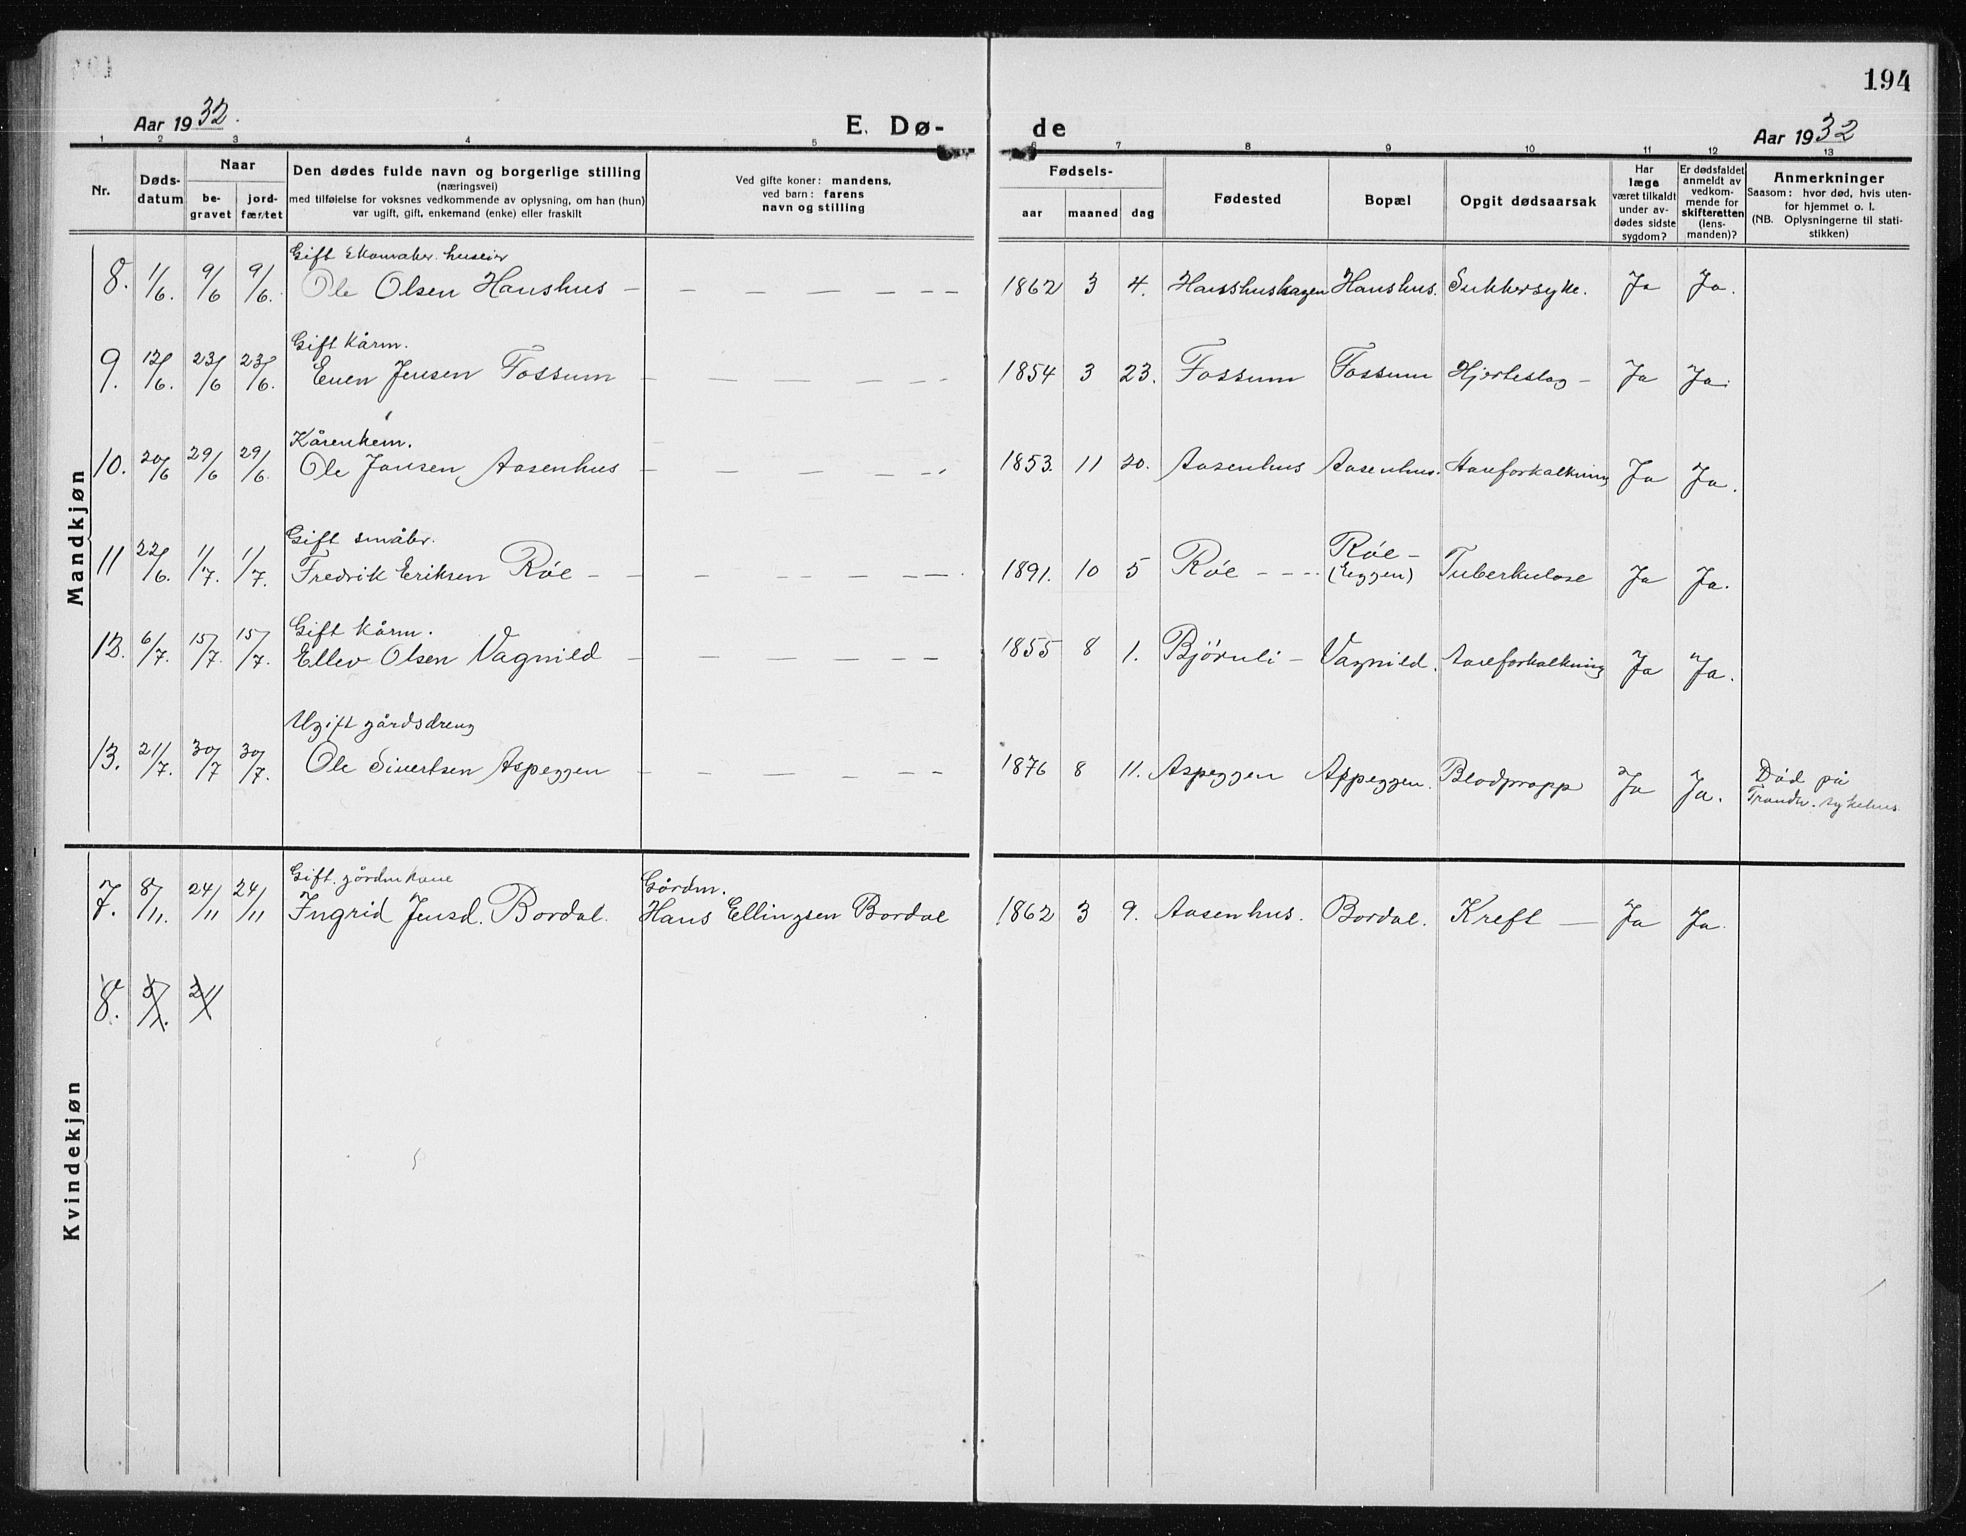 194
Aar 1932.
E. Dø-
de
Aar 1932
1 2 3 4 5 6 7 8 9 10 11 12 13
Nr.
Døds-
datum
Naar
be-
gravet
jord-
fæstet
Den dødes fulde navn og borgerlige stilling
(næringsvei)
med tilføielse for voksnes vedkommende av oplysning, om han (hun)
var ugift, gift, enkemand (enke) eller fraskilt
Ved gifte koner: mandens,
ved barn: farens
navn og stilling
Fødsels-
aar maaned dag
Fødested
Bopæl
Opgit dødsaarsak
Har
læge
været tilkaldt
under av-
dødes sidste
sygdom?
Er dødsfaldet
anmeldt av
vedkom-
mende for
skifteretten
(lens-
manden)?
Anmerkninger
Saasom: hvor død, hvis uten-
for hjemmet o. l.
(NB. Oplysningerne til stati-
stikken)
Mandkjøn
Gift huseier
8. 1/6. 9/6 9/6. Ole Olsen Haushus — — — — — — 1862 3 4. Haushushagen Haushus. Sukkersyke. Ja Ja.
Gift kårm.
9. 12/6. 23/6 23/6. Even Jensen Fossum — — — — — 1854 3 23. Fossum Fossum Hjerteslag — Ja Ja.
10. 20/6 29/6 29/6. Ole Jonsen Aasenhus — — — — — 1853. 11 20. Aasenhus Aasenhus. Aareforkalkning Ja Ja.
Gift småbr.
11 22/6. 1/7. 1/7. Fredrik Eriksen Røe — — — — — — 1891. 10 5 Røe — — — Røe — Tuberkulose Ja Ja.
(Eggen)
Gift kårm.
12. 6/7. 15/7. 15/7. Ellev Olsen Vagnild — — — — — — 1855 8 1. Bjørnli — Vagnild. Aareforkalkning Ja Ja.
Ugift gårdsdreng
13. 21/7. 30/7 30/7. Ole Sivertsen Aspeggen — — — — — — 1876 8 11. Aspeggen Aspeggen. Blodpropp Ja Ja. Død på
Trondh. sykehus.
Kvindekjøn
Gift. gårdmkone Gårdm.
7. 8/11. 24/11 24/11 Ingrid Jensd. Bordal. Hans Ellingsen Bordal 1862 3 9. Aasenhus. Bordal. Kreft — Ja Ja.
8.